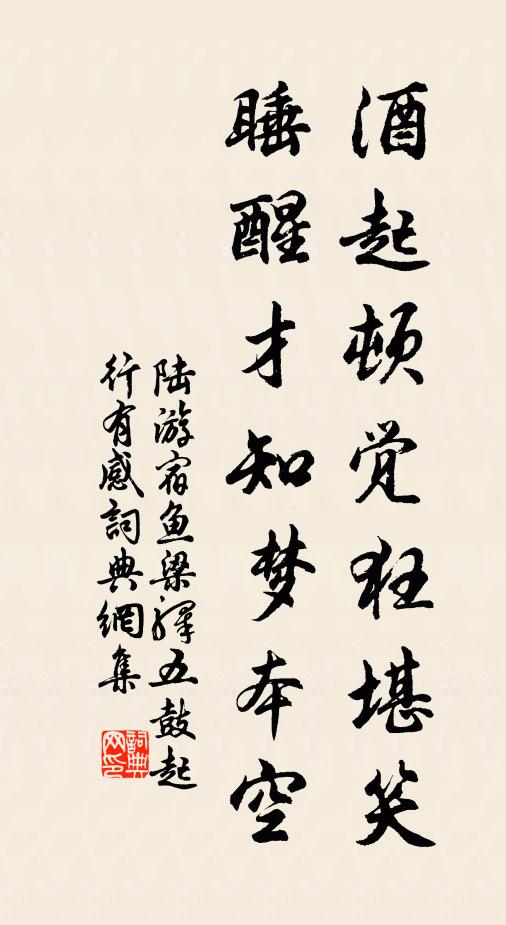 酒起顿觉狂堪笑
睡醒才知梦本空
陆游宿鱼梁驿五鼓起
行有感詞典網集
詞典
网印